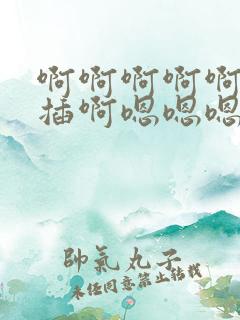 啊啊啊啊啊
插啊嗯嗯嗯
帥氣丸子
未经同意禁止转载